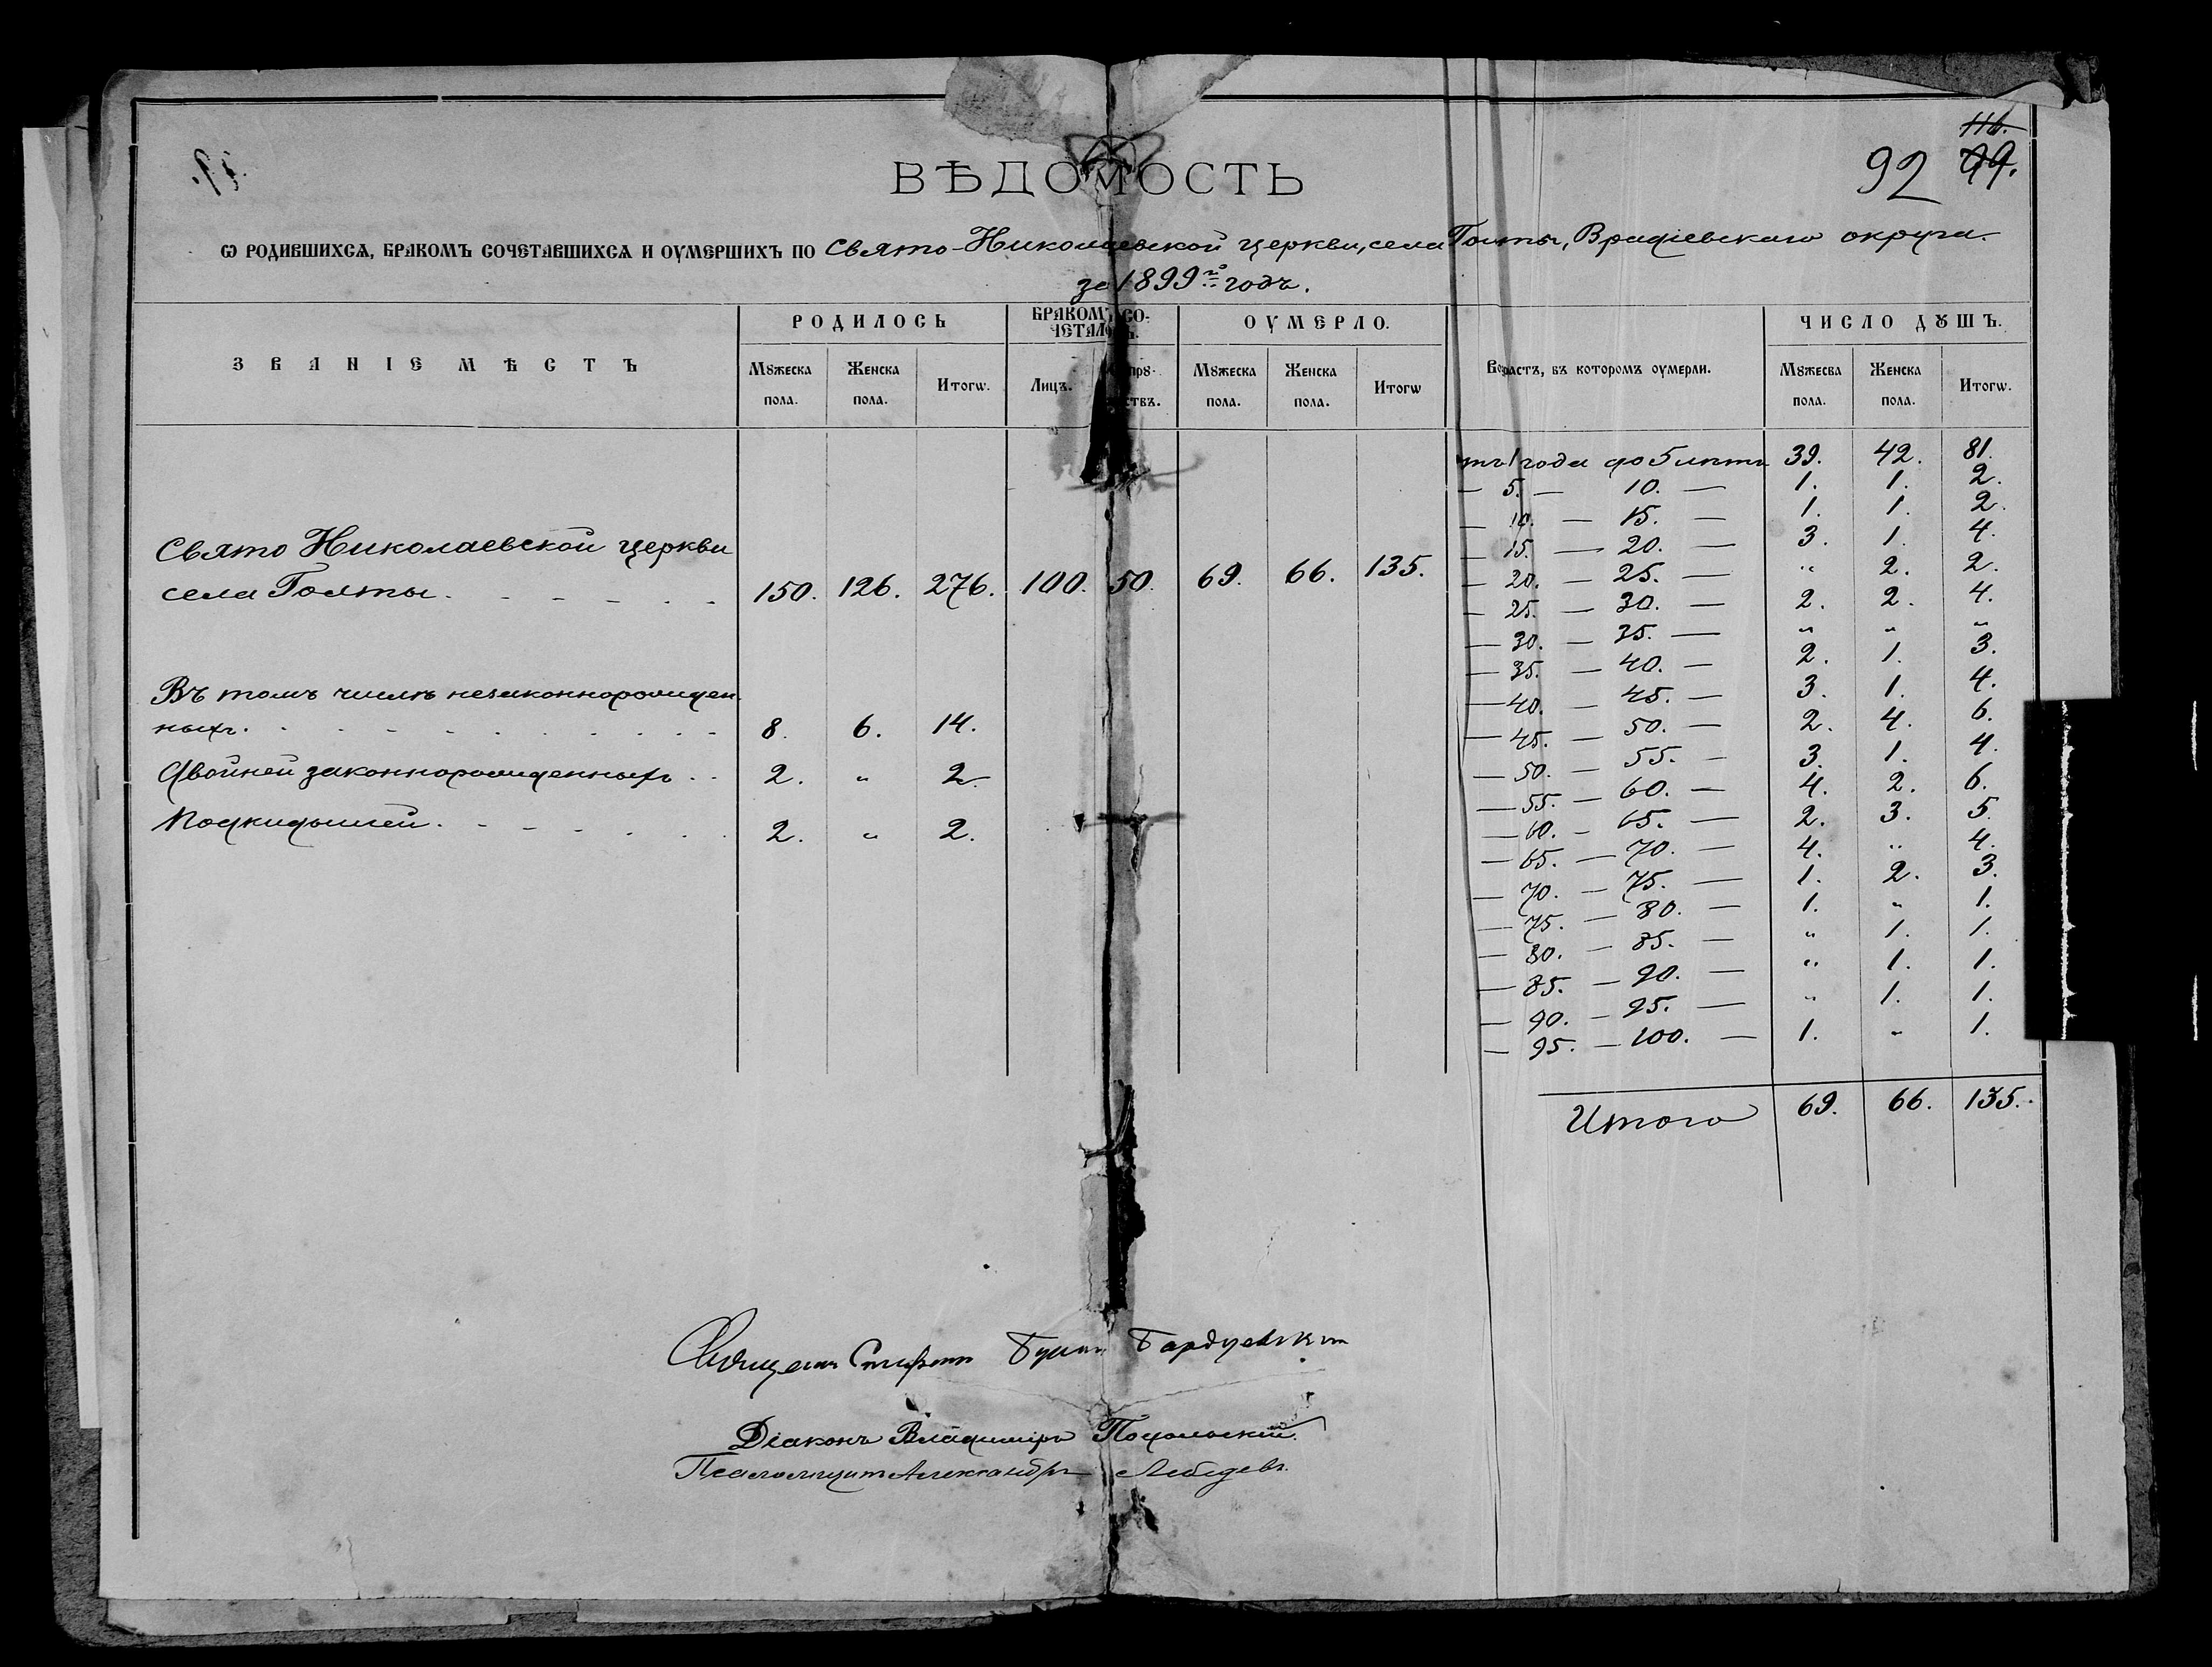 116.
92 79.
ВѢДОМОСТЬ
Ѡ РОДИВШИХСѦ, БРАКОМЪ СОЧЕТАВШИХСѦ И ОУМЕРШИХЪ ПО Свято-Николаевской церкви, села Голты, Врадіевскаго округа.
за 1899го годъ.
ЗВАНІЕ МѢСТЪ
РОДИЛОСЬ
Мꙋжеска пола.
Женска пола.
Итогѡ.
БРАКОМЪ СОЧЕТАЛОСЬ.
Лицъ.
ОУМЕРЛО.
Мꙋжеска пола.
Женска пола.
Итогѡ
Возрастъ, въ которомъ оумерли.
ЧИСЛО ДꙊШЪ.
Мꙋжеска пола.
Женска пола.
Итогѡ.
Свято Николаевской церкви
села Голты. 150. 126. 276. 100. 50. 69. 66. 135.
Въ томъ числѣ незаконнорожден-
ныхъ. 8. 6. 14.
Двойней законнорожденныхъ 2. „ 2.
Подкидышей. 2. „ 2.
отъ 1 года до 5 лѣтъ 39. 42. 81.
— 5. — 10. — 1. 1. 2.
— 10. — 15. — 1. 1. 2.
— 15. — 20. — 3. 1. 4.
— 20. — 25. — „ 2. 2.
— 25. — 30. — 2. 2. 4.
— 30. — 35. — „ „ „
— 35. — 40. — 2. 1. 3.
— 40. — 45. — 3. 1. 4.
— 45. — 50. — 2. 4. 6.
— 50. — 55. — 3. 1. 4.
— 55. — 60. — 4. 2. 6.
— 60. — 65. — 2. 3. 5.
— 65. — 70. — 4. „ 4.
— 70. — 75. — 1. 2. 3.
— 75. — 80. — 1. „ 1.
— 80. — 85. — „ 1. 1.
— 85. — 90. — „ 1. 1.
— 90. — 95. — „ 1. 1.
— 95. — 100. — 1. „ 1.
Итого 69. 66. 135.
Діаконъ Владиміръ Подольскій.
Псаломщик Александръ Лебедевъ.